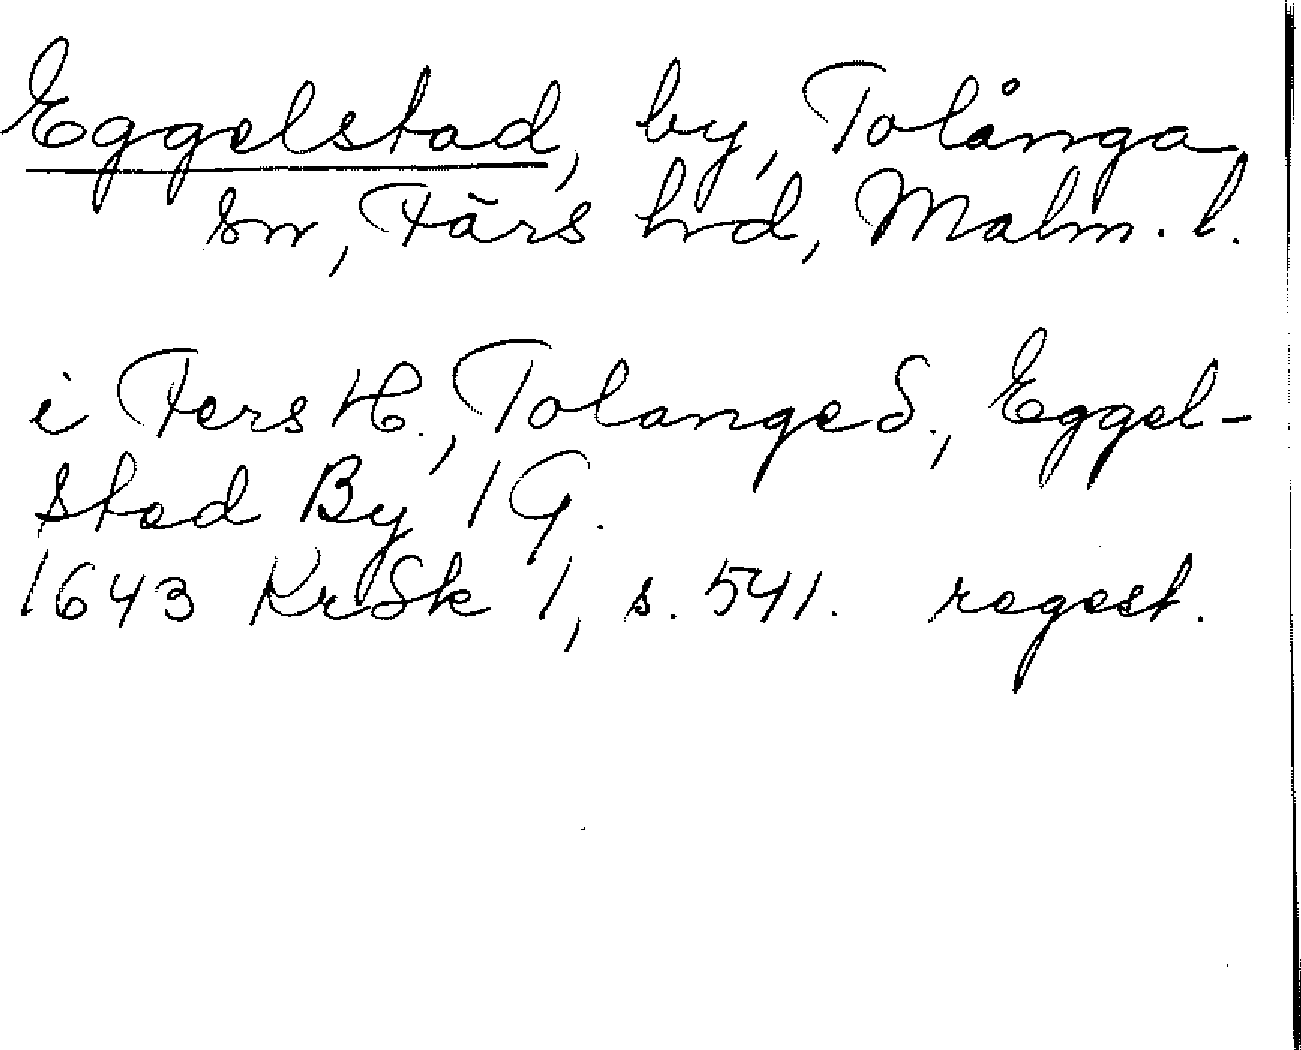 Eggelstad, by, Tolånga
sn, Färs hrd, Malm. l.
i Fers H., Tolange S., Eggel-
stad By 1 G.
1643 KrSk 1, s. 541. regest.